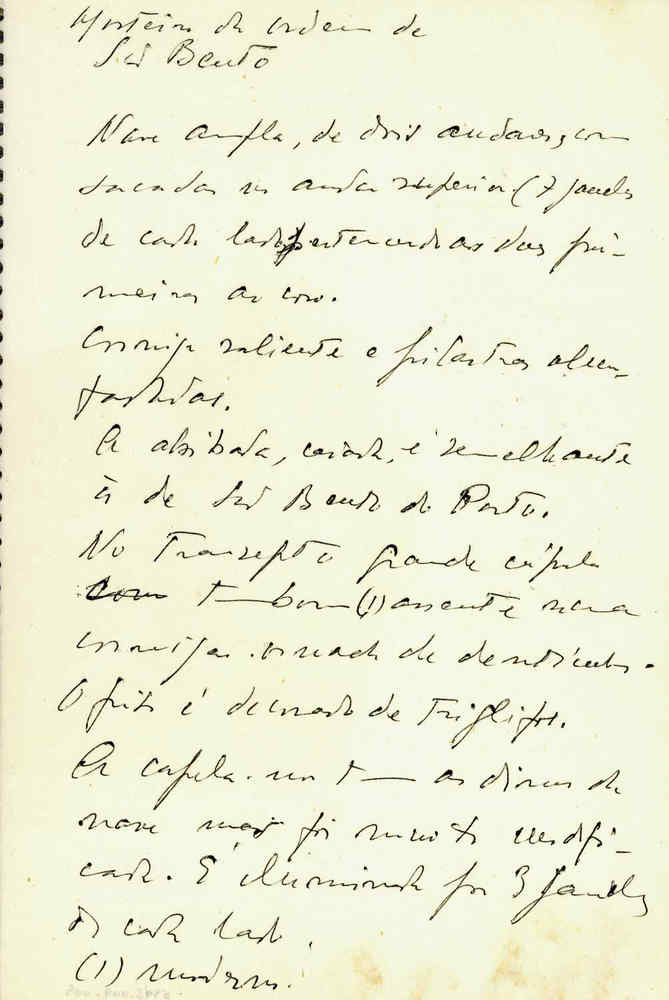 Mosteiro da ordem de
São Bento
Nave ampla, de dois andares, com
sacadas no andar superior (7 janelas
de cada lado, pertencendo as duas pri-
meiras ao coro.
Cornija saliente e pilastras almo-
fadadas.
A abóbada, caiada, é semelhante
à de São Bento do Porto.
No transepto grande cúpula
com tambor (1) assente numa
cornija ornada de dentículos.
O friso é decorado de triglifos.
A capela-mor tem as dimensões da
nave mas foi muito modifi-
cada. É iluminada por 3 janelas
de cada lado.
(1) moderno.